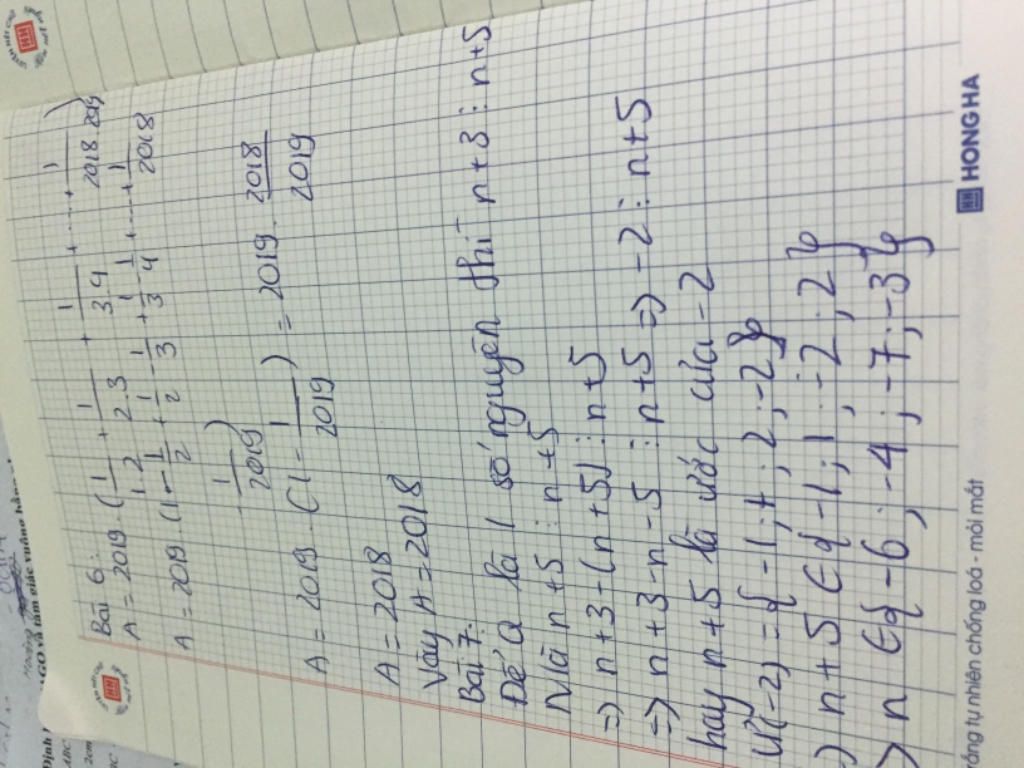 Bài 6:
A = 2019 . ( 1/1.2 + 1/2.3 + 1/3.4 + .... + 1/2018.2019 )
A = 2019 . (1 - 1/2 + 1/2 - 1/3 + 1/3 - 1/4 + .... + 1/2018
- 1/2019 )
A = 2019 . (1 - 1/2019 ) = 2019 . 2018/2019
A = 2018
Vậy A = 2018
Bài 7:
Để Q là 1 số nguyên thì n+3 ⋮ n+5
Mà n+5 ⋮ n+5
=) n+3-(n+5) ⋮ n+5
=) n+3-n-5 ⋮ n+5 =) -2 ⋮ n+5
hay n+5 là ước của -2
Ư(-2) = { -1; 1; 2; -2}
=) n+5 ∈ { -1; 1; -2; 2}
=) n ∈ { -6; -4; -7; -3}
HONG HA
trắng tự nhiên chống loá - mỏi mắt
HH
HH
ABC
2cm